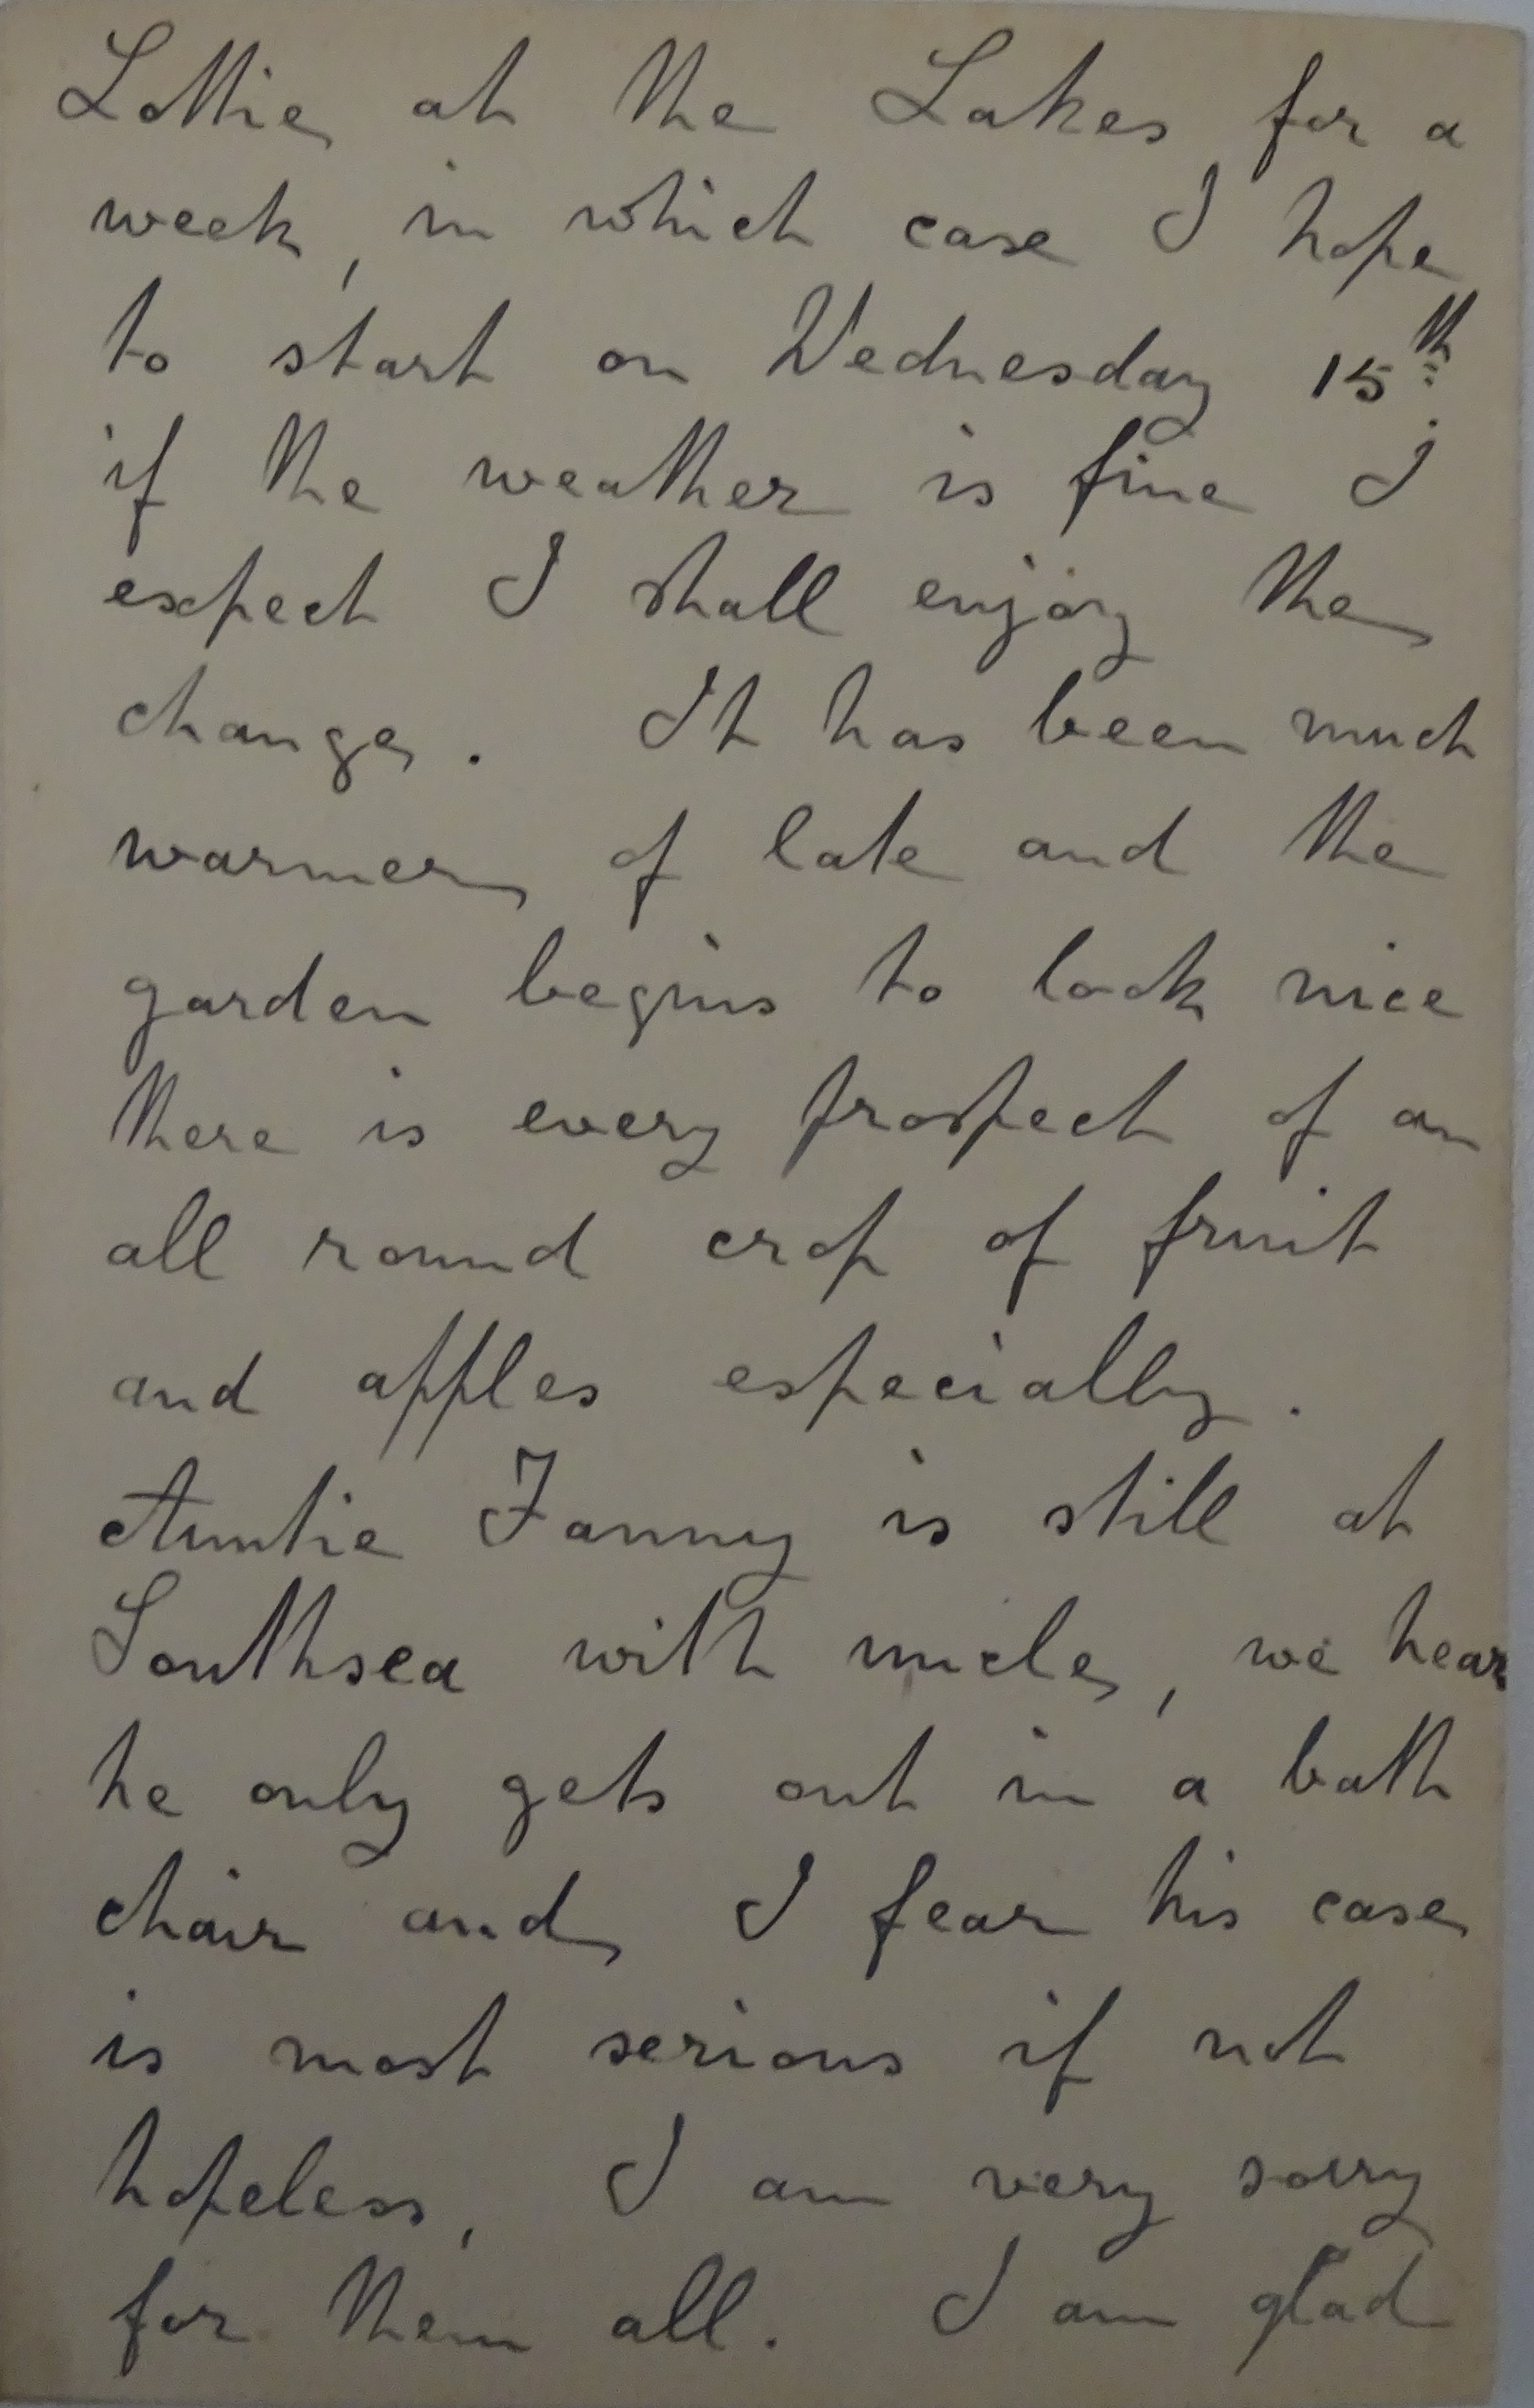 Lottie at the Lakes for a
week, in which case I hope
to start on Wednesday 15th
if the weather is fine I
expect I shall enjoy the
change. It has been much
warmer of late and the
garden begins to look nice
there is every prospect of an
all round crop of fruit
and apples especially.
Auntie Fanny is still at
Southsea with uncle, we hear
he only gets out in a bath
chair and I fear his case
is most serious if not
hopeless, I am very sorry
for them all. I am glad